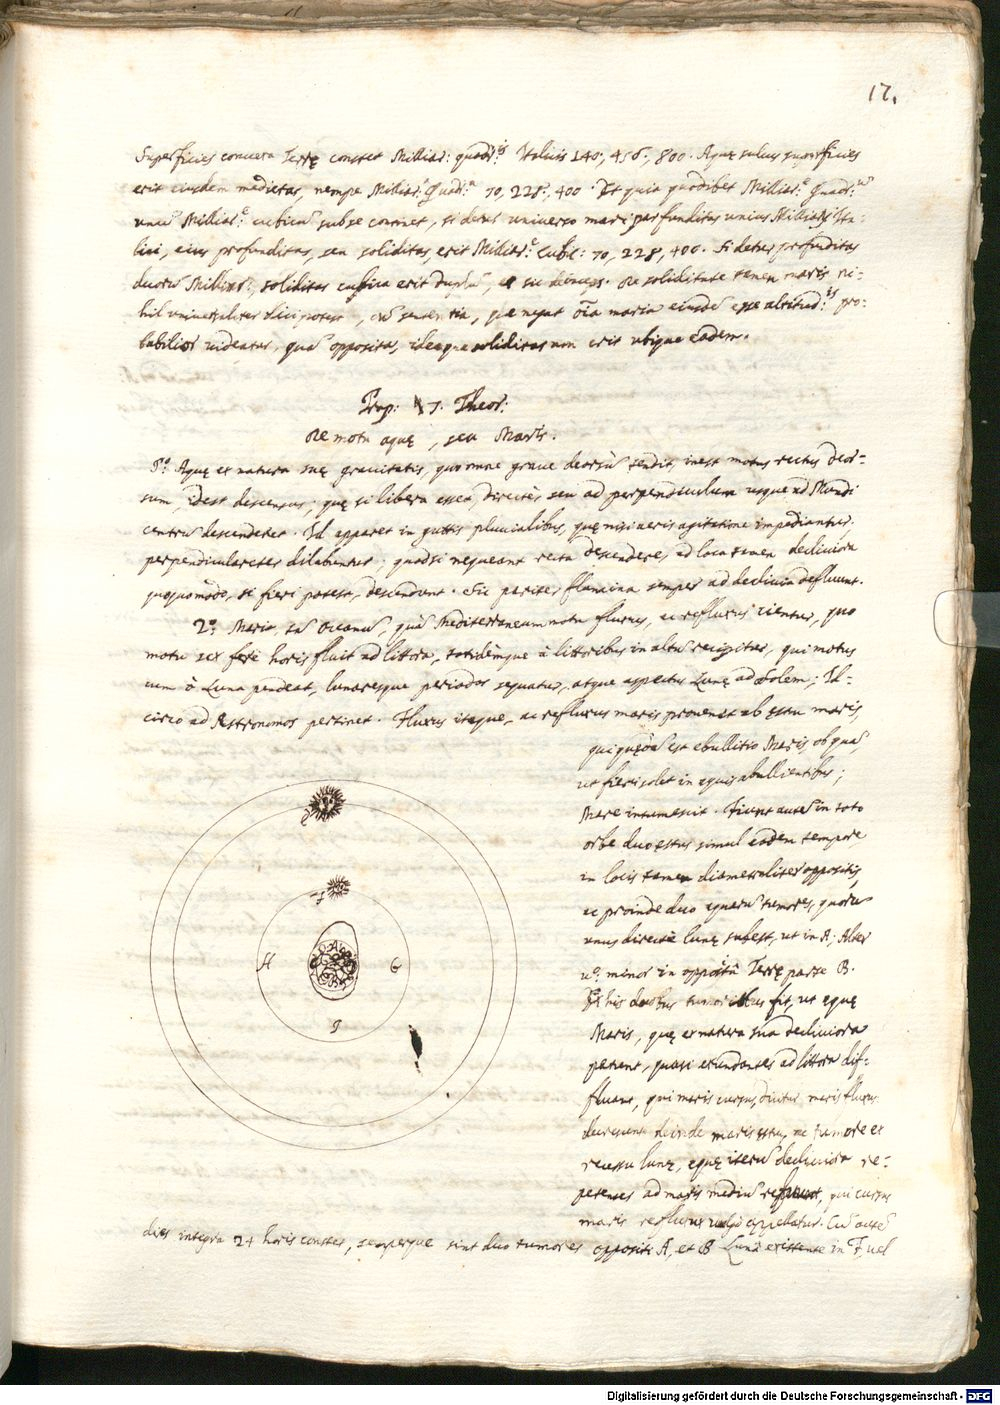 17.
Superficies convexa Terrę constet Milliar: quadr:is Italicis 140, 456, 800. Aquę salus superficies
erit eiusdem medietas, nempe Milliar: Quadr: 70, 228, 400. Et quia quodlibet Milliar:e Quadr:um
unū Milliar:e cubicū sub se continet, si detur universo mari profunditas unius Milliarij Ita-
lici, eius profunditas, seu soliditas erit Milliar: Cubc: 70, 228, 400. Si detur profunditas
duorū Milliar:, soliditas cubica erit duplū, et sic deinceps. De soliditate tamen maris ni-
hil universaliter dici potest, cū sententia, quę negat oīa maria eiusdē esse altitud:is pro-
babilior videatur, quā opposita, ideoque soliditas non erit ubique eadem.
Prop: 7. Theor:
De motu aquę, seu Maris.
P.o Aquę ex natura suę gravitatis, quo omne grave deorsū tendit, inest motus rectus deor-
sum, idest descensus; quę si libera esset, directè seu ad perpendiculum usque ad Mundi
centrū descenderet. Id apparet in guttis pluvialibus, quę nisi aeris agitatione impediantur
perpendiculariter dilabuntur; quodsi nequeant recta descendere, ad loca tamen decliviora
quoquomodo, si fieri potest, descendunt. Sic pariter flumina semper ad declivia defluunt.
2.o Maria, tā Oceanū, quā Mediterraneum motu fluxus, ac refluxus cientur, quo
motu sex ferè horis fluit ad littora, totidemque à littoribus in altū recipitur, qui motus
cum à Luna pendeat, lunaresque periodos sequatur, atque aspectus Lunę ad Solem; Id-
circo ad Astronomos pertinet. Fluxus itaque, ac refluxus maris provenit ab ęstu maris,
qui est ebullitio Maris, ob quā,
ut fieri solet in aquis abullientibus;
Mare intumescit. Fiunt autē in toto
orbe duo ęstus simul eodem tempore
in locis tamen diametraliter oppositis,
ac proinde duo aquarū tumores, quorū
unus directè Lunę subest, ut in A; Alter
v.o minor in oppositā Terrę parte B.
Ex his duobus tumoribus fit, ut aquę
Maris, quę ex natura sua decliviora
petunt, quasi exundantes ad littora dif-
fluant, qui maris cursus, dicitur maris fluxus:
decrescente deinde maris ęstu, ac tumore ex
recessu Lunę, aquę iterū decliviora re-
petentes ad maris mediū refluunt, qui cursus
maris refluxus appellatur. Cū autē
dies integra 24 horis constet, semperque sint duo tumores oppositi A, et B Lunā existente in F, vel
C
F
A
H
G
B
I
Digitalisierung gefördert durch die Deutsche Forschungsgemeinschaft - DFG